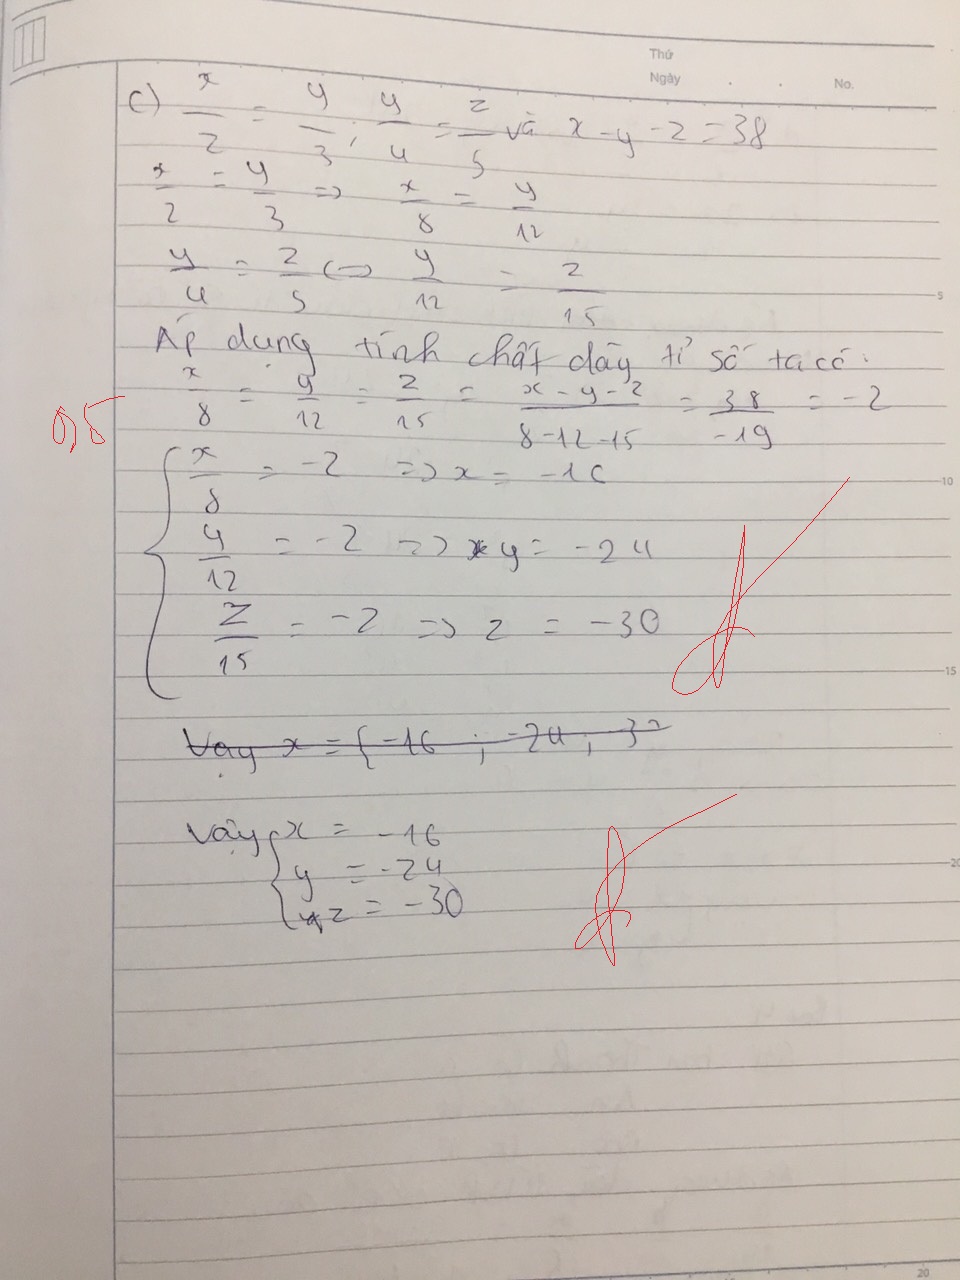 Thứ
Ngày . . No.
c) x/2 = y/3 ; y/4 = z/5 và x - y - z = 38
x/2 = y/3 => x/8 = y/12
y/4 = z/5 <=> y/12 = z/15
5
Áp dụng tính chất dãy tỉ số ta có:
x/8 = y/12 = z/15 = x - y - z / 8 - 12 - 15 = 38/-19 = -2
0,5
x/8 = -2 => x = -16
10
y/12 = -2 => y = -24
z/15 = -2 => z = -30
15
Vậy x = { -16 ; -24 ; 3
Vậy { x = -16
y = -24
20
z = -30
20